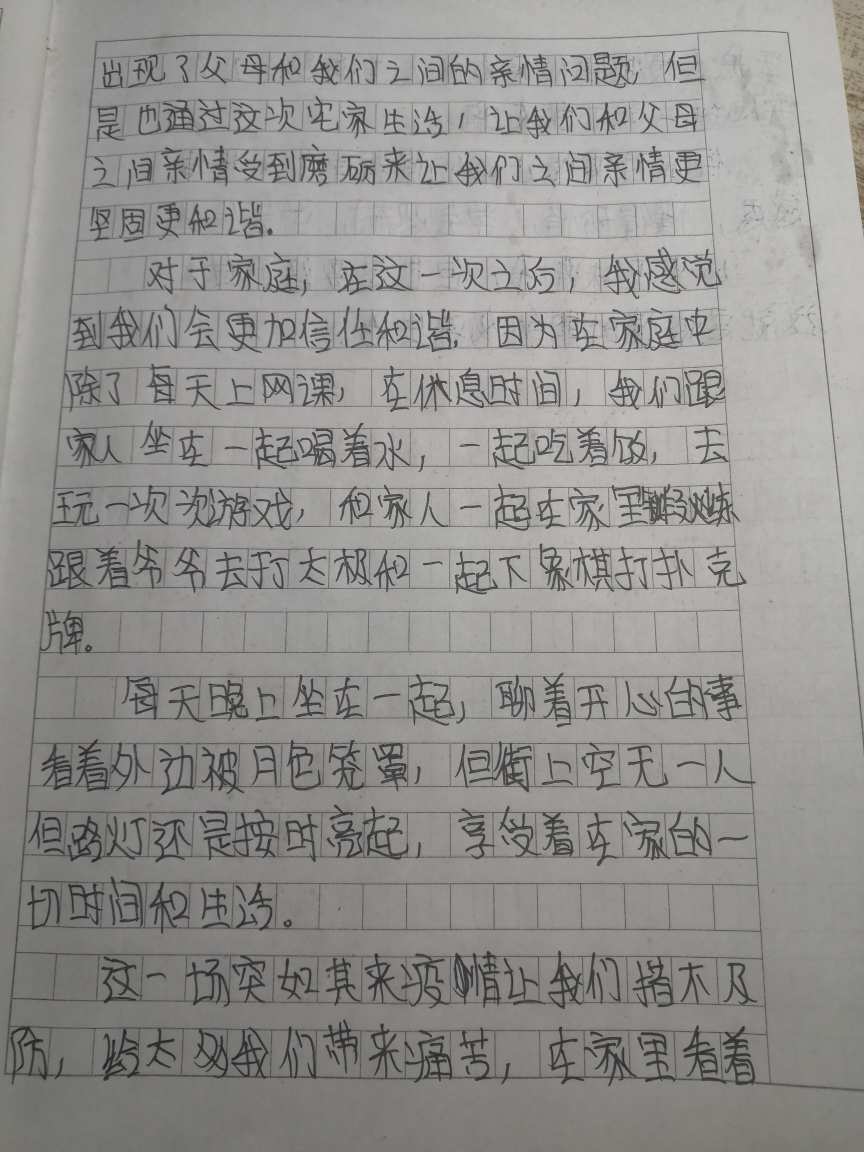 出现了父母和我们之间的亲情问题，但
是也通过这次宅家生活，让我们和父母
之间亲情受到磨砺来让我们之间亲情更
坚固更和谐。
对于家庭，在这一次之后，我感觉
到我们会更加信任和谐，因为在家庭中
除了每天上网课，在休息时间，我们跟
家人坐在一起喝着水，一起吃着饭，去
玩一次次游戏，和家人一起在家里锻炼
跟着爷爷去打太极和一起下象棋打扑克
牌。
每天晚上坐在一起，聊着开心的事
看着外边被月色笼罩，但街上空无一人
但路灯还是按时亮起，享受着在家的一
切时间和生活。
这一场突如其来疫情让我们措不及
防，给太多我们带来痛苦，在家里看着